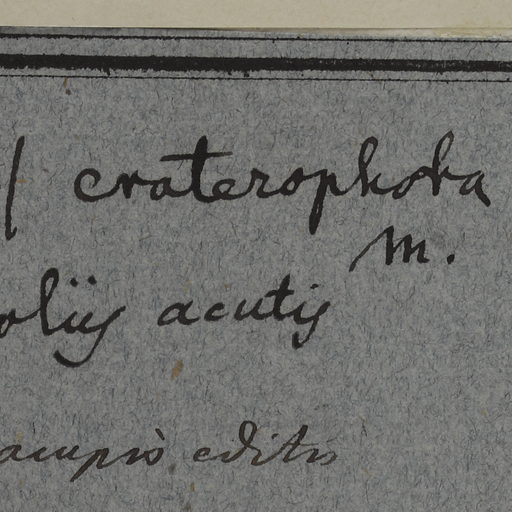 craterophora
m.
oliis acutis
editis